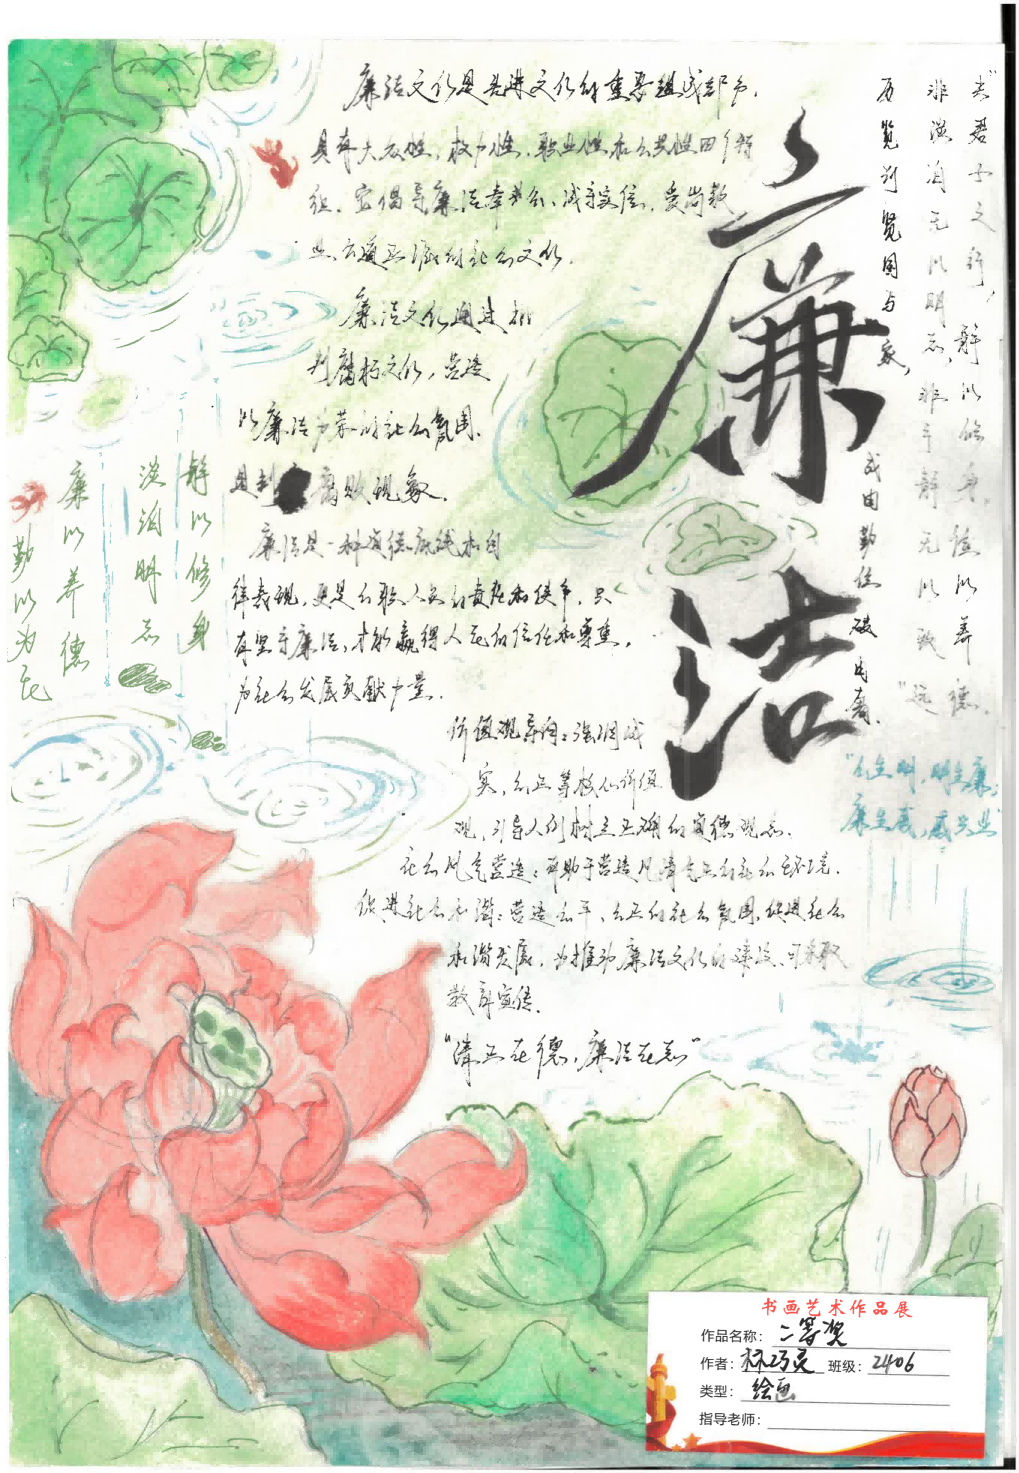 廉洁文化是先进文化的重要组成部分,
具有大众性,权力性,职业性和公共性四个特
征.它倡导廉洁奉公、诚实守信,爱岗敬
业,公道正派的社会文化.
廉洁文化通过批
判腐朽文化,营造
以廉洁为荣的社会氛围.
腐败现象.
廉洁是一种道德底线和自
律表现,更是公职人员的责任和使命,只
有坚守廉洁,才能赢得人民的信任和尊重,
为社会发展贡献力量.
价值观导向:强调诚
实,公正等核心价值
观,引导人们树立正确的道德观念.
社会风气营造:有助于营造风清气正的社会环境.
促进社会和谐:营造公平、公正的社会氛围,促进社会
和谐发展,为推动廉洁文化的建设,可采取
教育宣传.
"清正在德,廉洁在志"
廉洁
历览前贤国与家,
成由勤俭破由奢.
"夫君子之行,静以修身,俭以养德.
非淡泊无以明志,非宁静无以致远"
"公生明,明生廉;
廉生威,威兴业"
静以修身
淡泊明志
廉以养德
勤以为民
书画艺术作品展
作品名称:二等奖
作者:林巧灵 班级:2406
类型:绘画
指导老师: